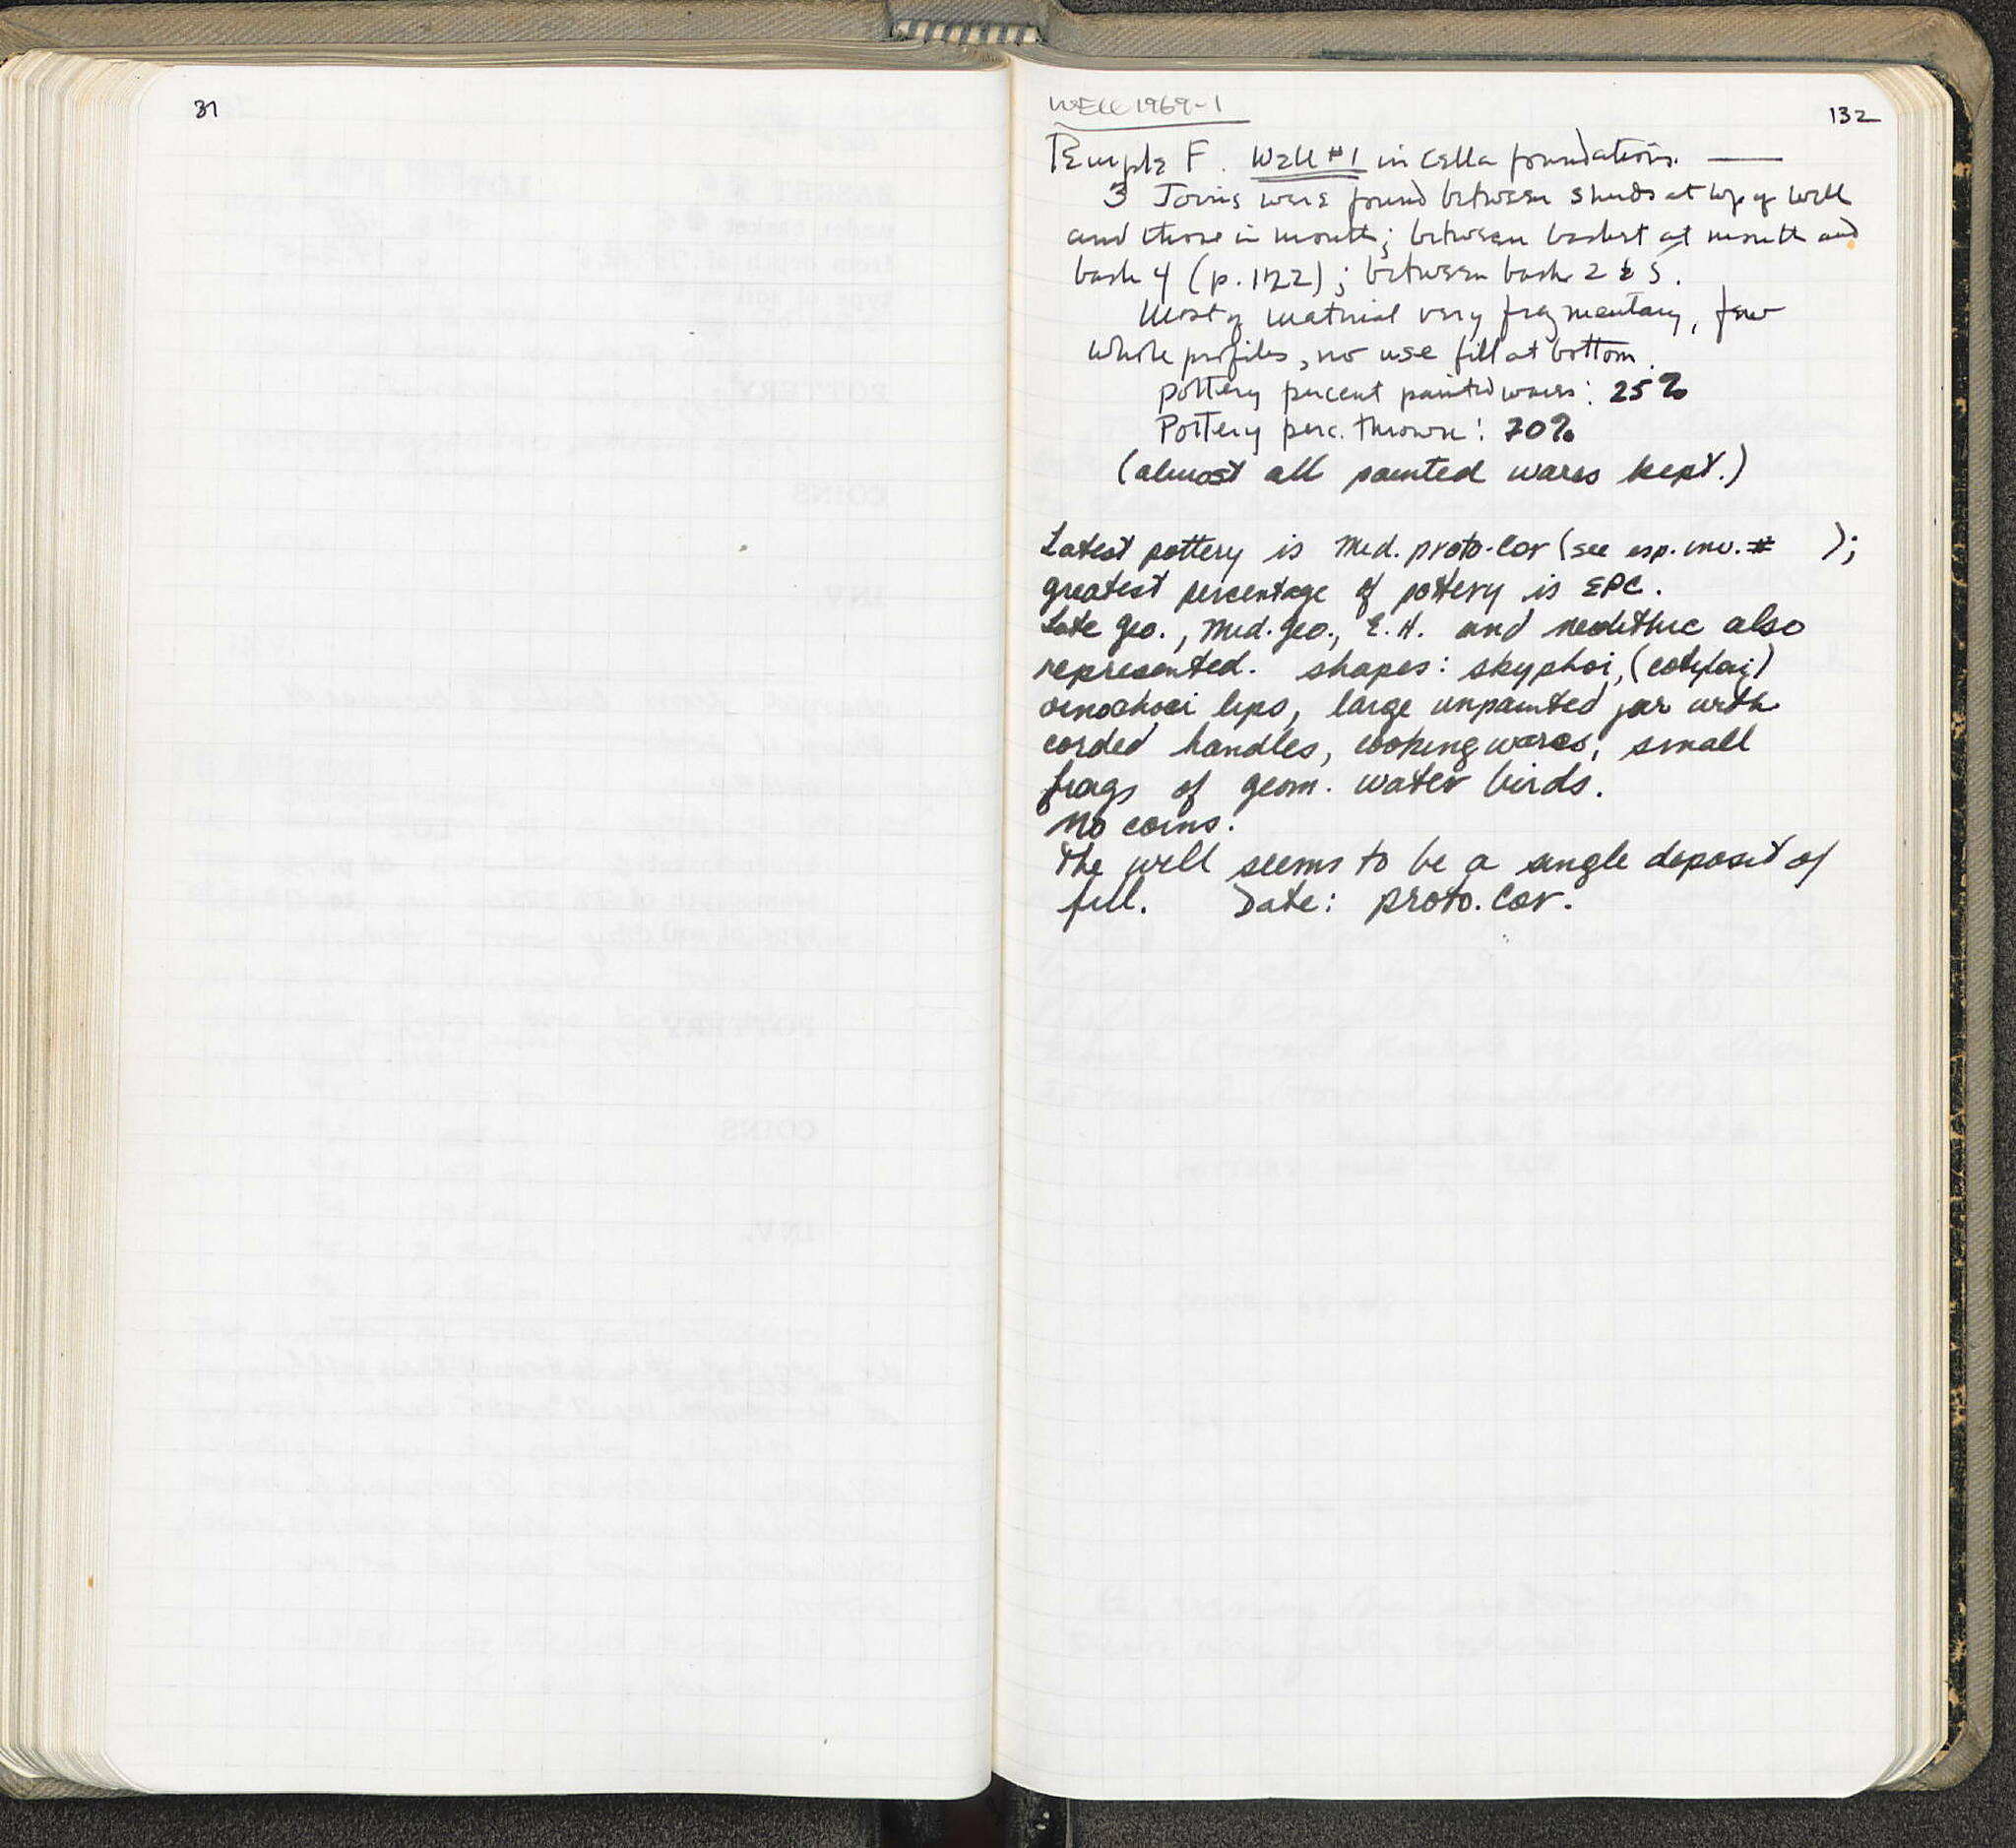 31
WELL 1969-1
132
Temple F. Well #1 in cella foundations. —
3 Joins were found between sherds at top of well
and those in mouth; between basket at mouth and
bask 4 (p. 122); between bask 2 & 5.
Most of material very fragmentary, few
whole profiles, no use fill at bottom.
pottery percent painted wares: 25%
Pottery perc. thrown: 70%
(almost all painted wares kept.)
Latest pottery is Med. proto-Cor (see esp. inv. # );
greatest percentage of pottery is EPC.
Late Geo., Med. Geo., E.H. and neolithic also
represented. shapes: skyphoi, (cotylai)
oinochoai lips, large unpainted jar with
corded handles, cooking wares, small
frags of geom. water birds.
No coins.
The well seems to be a single deposit of
fill. Date: proto. Cor.